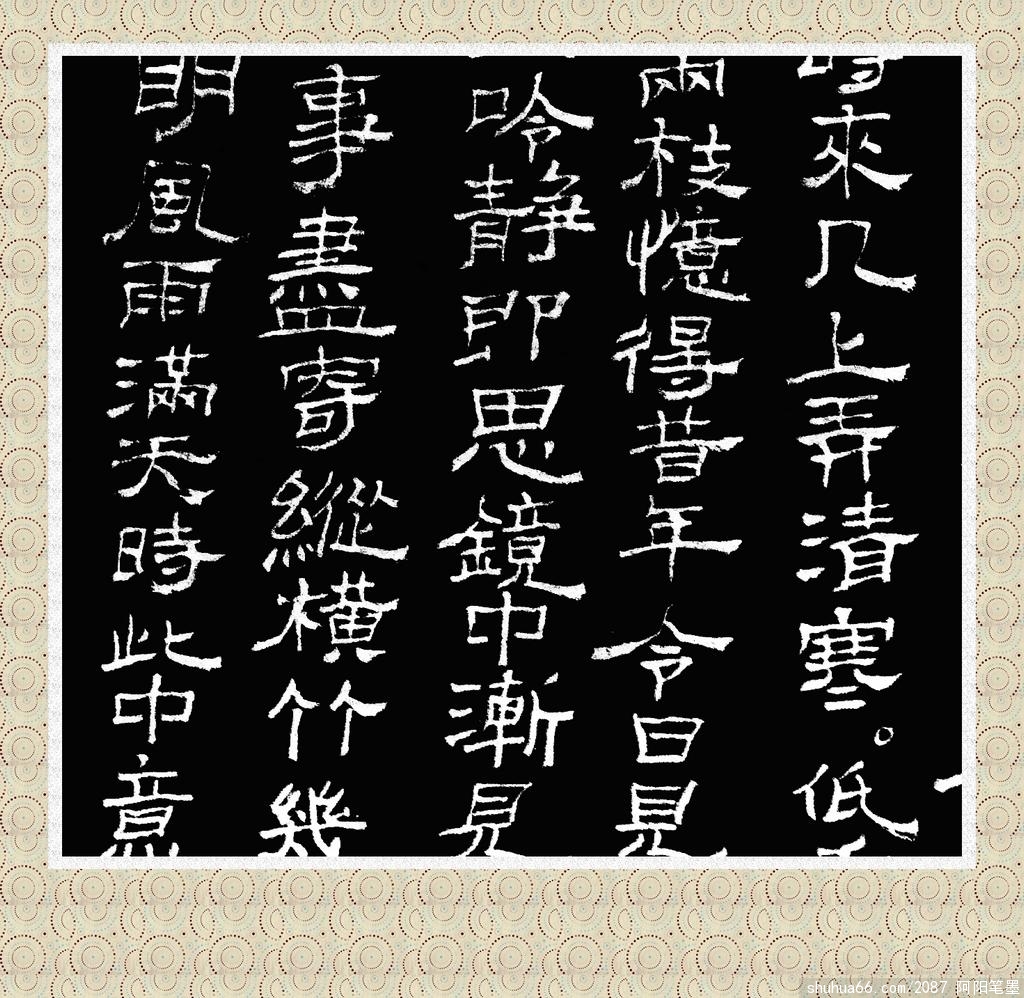 時來几上弄清寒。低
兩枝憶得昔年令日見
吟靜即思鏡中漸見
事盡寄縱橫竹幾
明風雨滿天時此中意
shuhua66.com/2087 阿阳笔墨